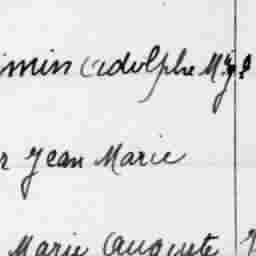 imin Adolphe
Jean Marie
Marie Auguste